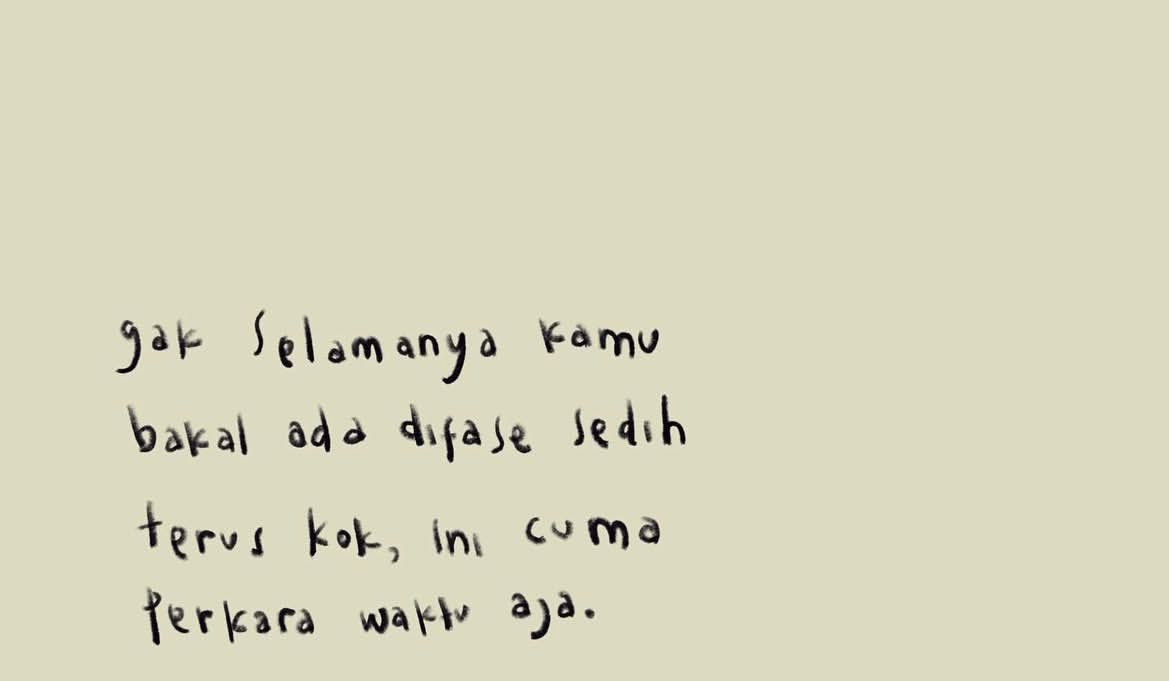 gak selamanya kamu
bakal ada difase sedih
terus kok, ini cuma
perkara waktu aja.